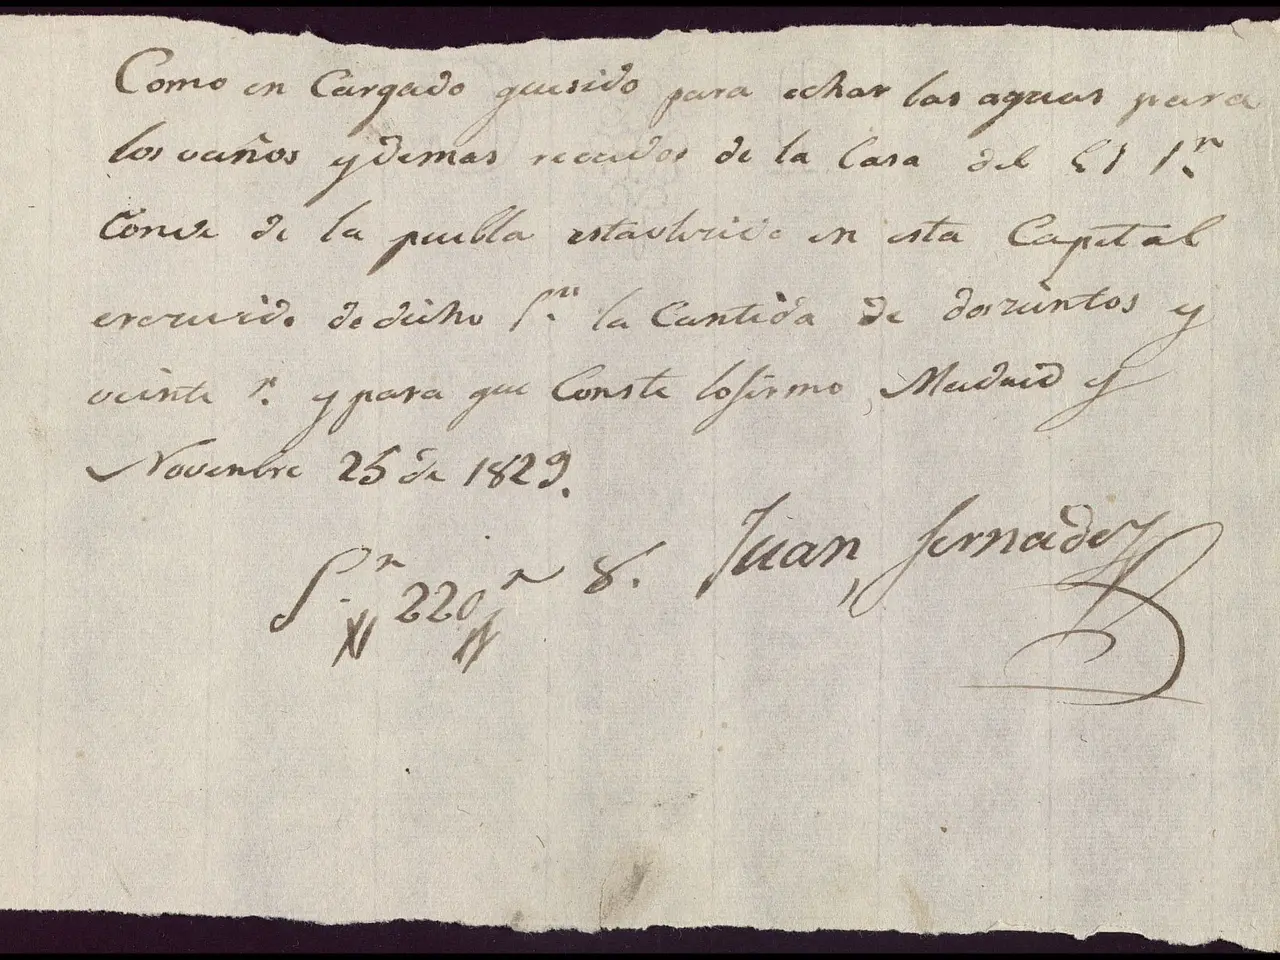 Como en Cargado que sido para echar las aguas para
los vaños y demas recados de la Casa del El Sr
Conde de la puebla establecido en esta Capital
erecivido de dicho Sr la Cantida de dozientos y
veinte rs y para que Conste lo firmo Madrid y
Novenbre 25 de 1829.
Juan fernadez
Sn 220 rn 8.